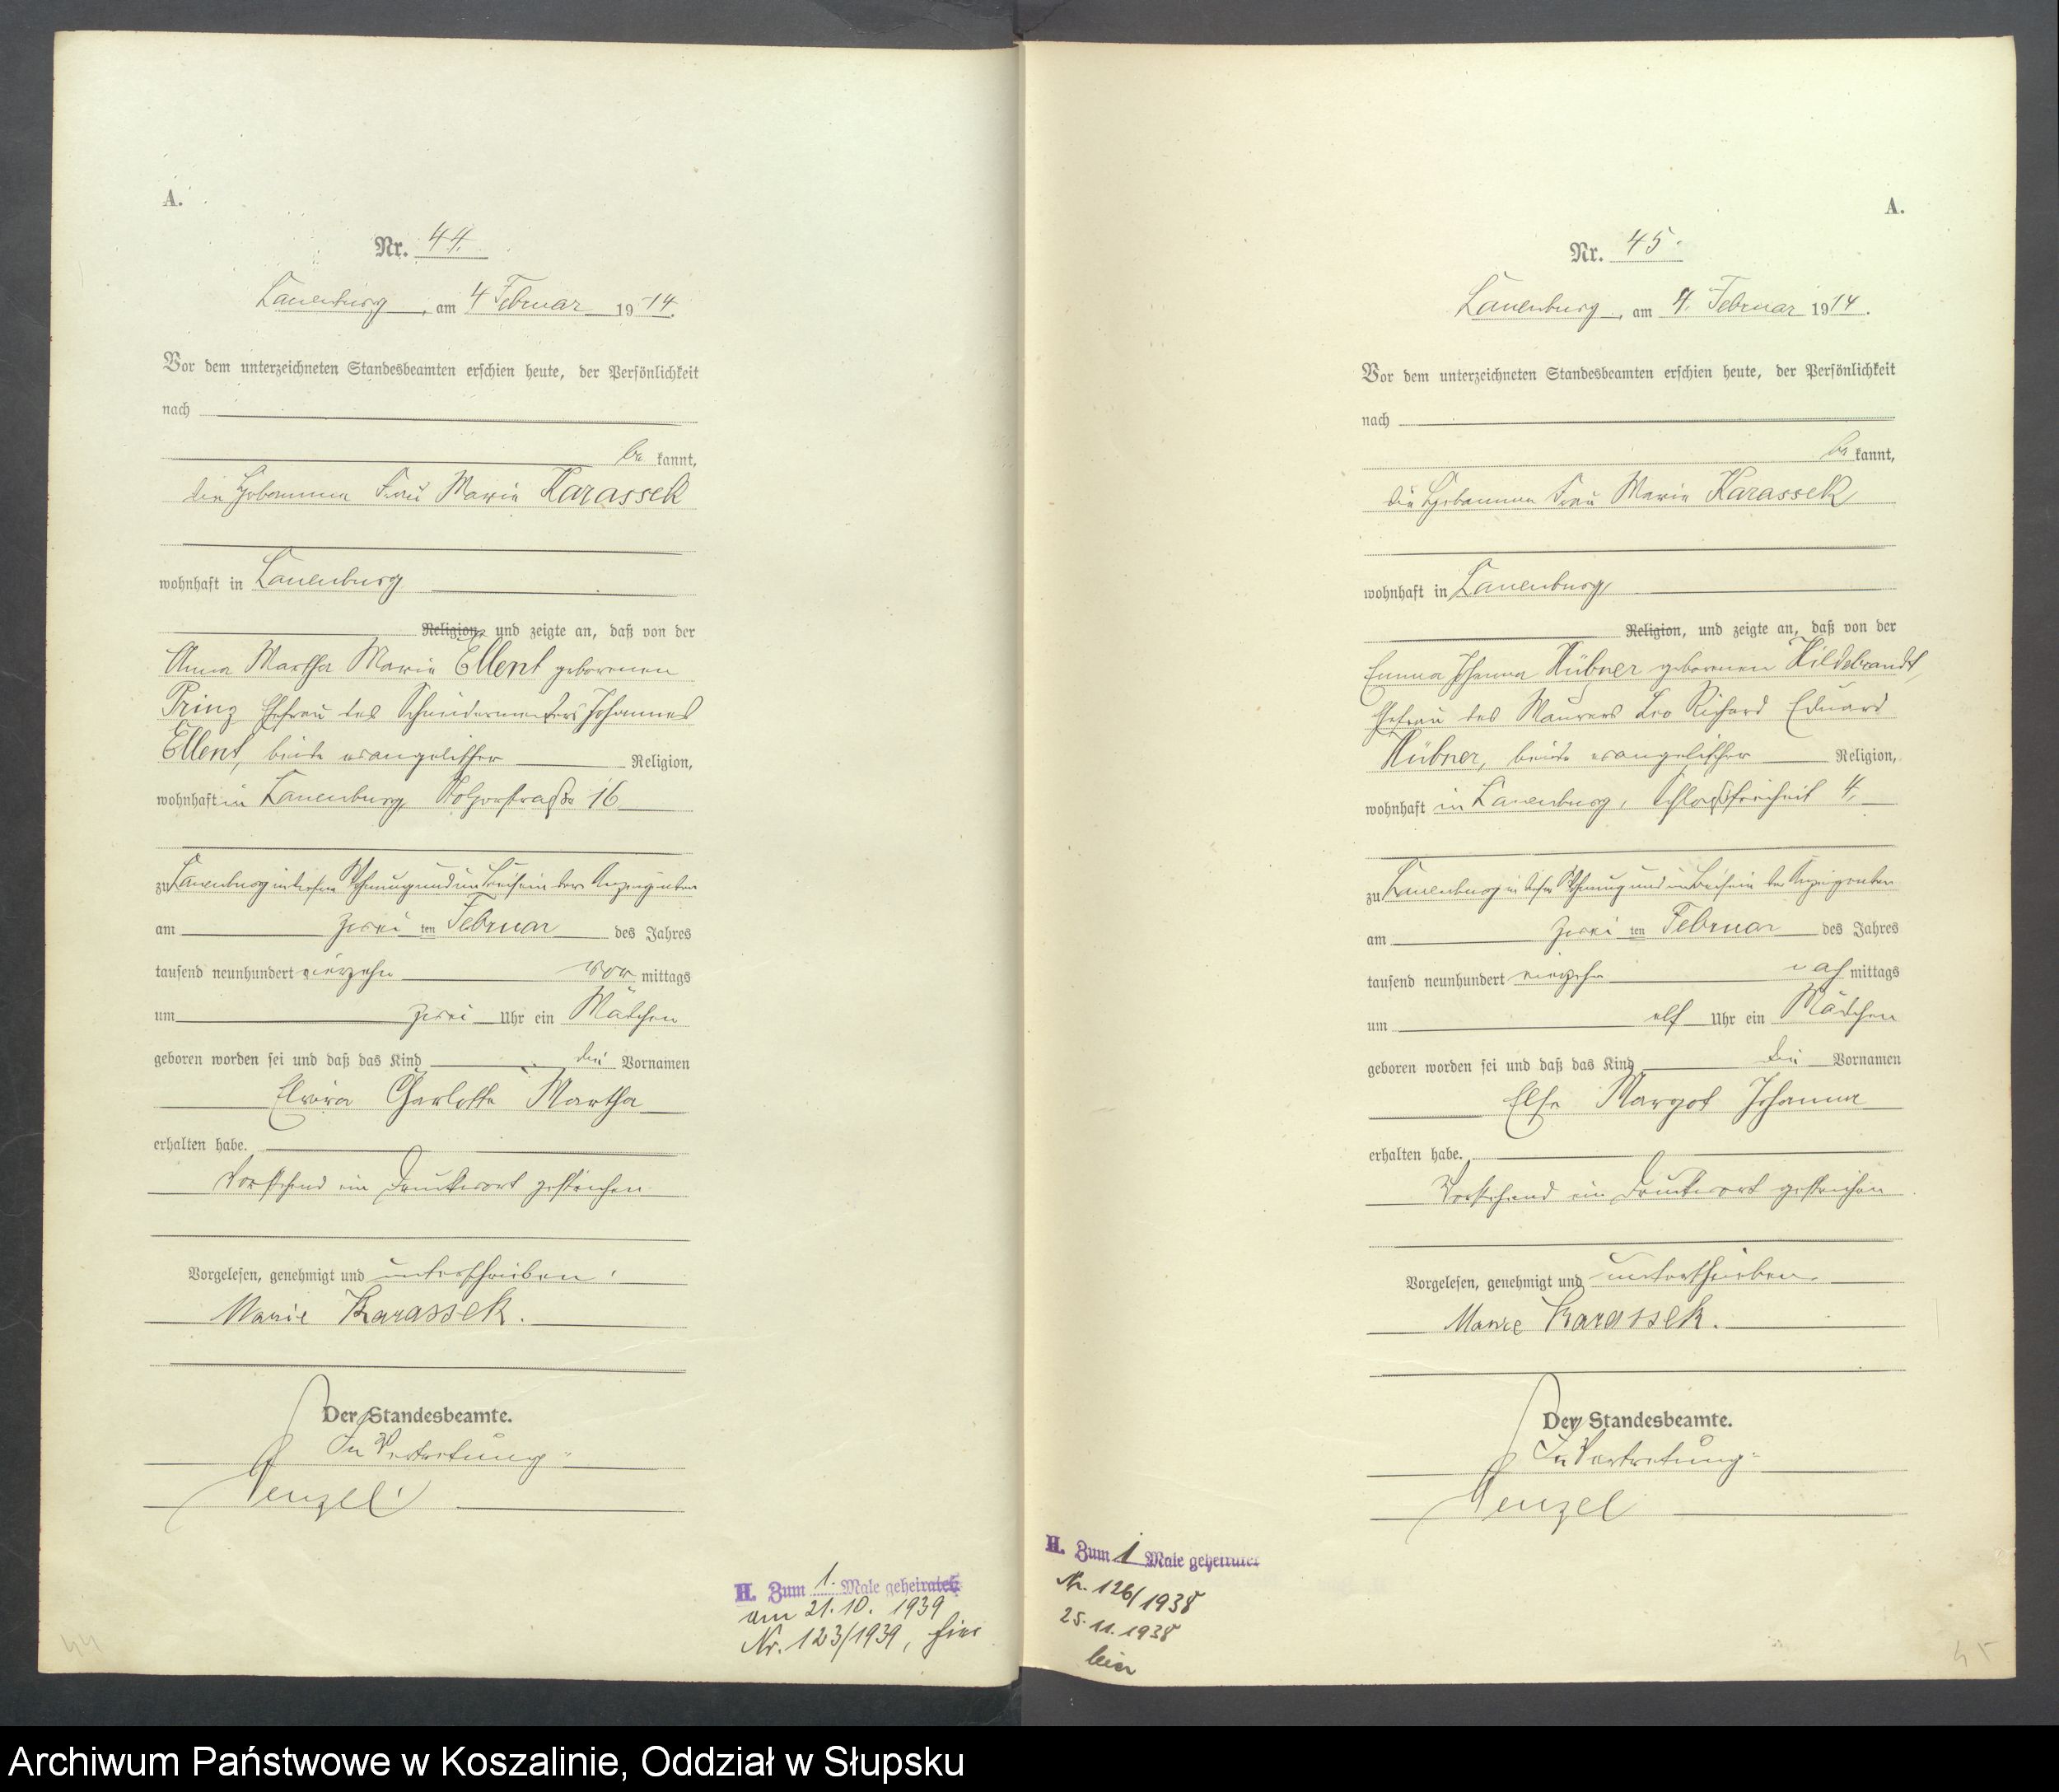 A.
Nr. 44.
Lauenburg, am 4 Februar 1914.
Vor dem unterzeichneten Standesbeamten erschien heute, der Persönlichkeit
nach
be kannt,
die Hebamme Frau Marie Karassek
wohnhaft in Lauenburg
Religion, und zeigte an, daß von der
Anna Martha Marie Ellent geborenen
Prinz Ehefrau des Schneidermeisters Johannes
Ellent, beide evangelischer Religion,
wohnhaft in Lauenburg 16
zu Lauenburg in dieser Wohnung und im Beisein der Anzeigenden
am zwei ten Februar des Jahres
tausend neunhundert vierzehn vor mittags
um zwei Uhr ein Mädchen
geboren worden sei und daß das Kind die Vornamen
Elvira Charlotte Martha
erhalten habe.
Vorstehend ein Druckwort gestrichen
Vorgelesen, genehmigt und unterschrieben.
Marie Karassek.
Der Standesbeamte.
In Vertretung
Wenzel
H. Zum 1. Male geheiratet
am 21.10. 1939
Nr. 123/1939, hier
44
A.
Nr. 45.
Lauenburg, am 4. Februar 1914.
Vor dem unterzeichneten Standesbeamten erschien heute, der Persönlichkeit
nach
be kannt,
die Hebamme Frau Marie Karassek
wohnhaft in Lauenburg
Religion, und zeigte an, daß von der
Emma Johanna Hübner geborenen Hildebrandt,
Ehefrau des Maurers Leo Richard Eduard
Hübner, beide evangelischer Religion,
wohnhaft in Lauenburg, Schloßfreiheit 4,
zu Lauenburg in dieser Wohnung und im Beisein der Anzeigenden
am zwei ten Februar des Jahres
tausend neunhundert vierzehn nach mittags
um elf Uhr ein Mädchen
geboren worden sei und daß das Kind die Vornamen
Else Margot Johanna
erhalten habe.
Vorstehend ein Druckwort gestrichen
Vorgelesen, genehmigt und unterschrieben.
Marie Karassek.
Der Standesbeamte.
In Vertretung
Wenzel
H. Zum 1 Male geheiratet
Nr. 126/1938
25.11.1938
hier
45
Archiwum Państwowe w Koszalinie, Oddział w Słupsku